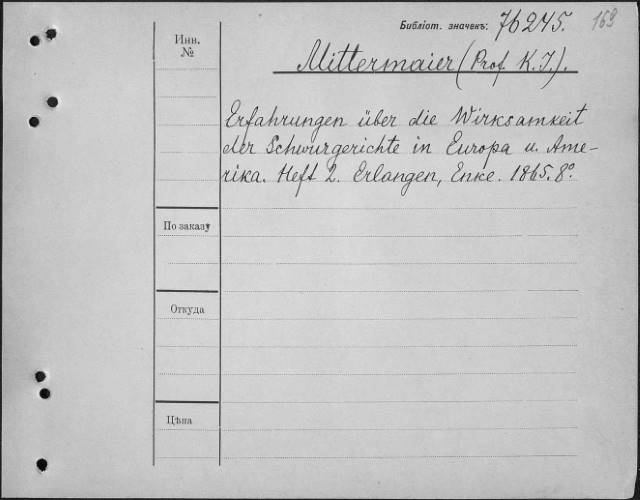 Библіот. значекъ: 76245. 163
Инв.
№
Mittermaier (Prof. K. J.).
Erfahrungen über die Wirksamkeit
der Schwurgerichte in Europa u. Ame-
rika. Heft 2. Erlangen, Enke. 1865. 8º.
По заказу
Откуда
Цѣна